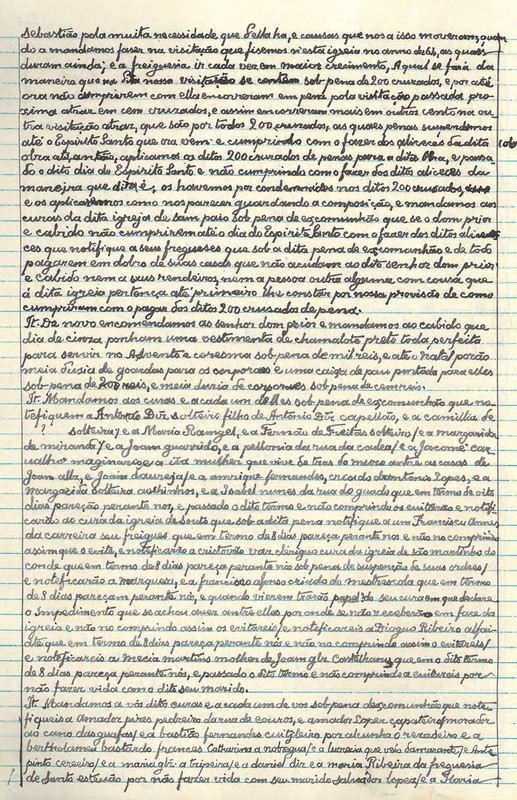 sebastião pola muita necessidade que disso ha, e causas que nos a isso moveram, quan
do a mandamos fazer na visitação que fizemos n'esta igreja no anno de 64, as quaes
duram ainda; e a freiguesia ir cada vez em maior crecimento, A qual se fará da
maneira que na dita nossa visitação se contém sob pena de 200 cruzados, e por até
ora não comprirem com ella encorreram em pena pola visitação passada pro-
xima atraz em cem cruzados, e assim encorreram mais em outros cento na ou-
tra visitação atraz, que são por todos 200 cruzados, as quaes penas suspendemos
até o Espirito Santo que ora vem e cumprindo com o fazer dos aliceces da dita
obra até então, aplicamos os ditos 200 cruzados de penas para a dita obra, e passa-
do o dito dia do Espirito Santo e não cumprindo com o fazer dos ditos aliceces da
maneira que dito é, os havemos por condenados nos ditos 200 cruzados,
e os aplicaremos como nos parecer guardando a composição, e mandamos aos
curas da dita igreja de sam paio sob pena de excomunhão que se o dom prior
e cabido não cumprirem até o dia do Espirito Santo com o fazer dos ditos alice-
ces que notifique a seus fregueses que sob a dita pena de excomunhão e de todo
pagarem em dobro de suas casas que não acudam ao dito senhor dom prior
e cabido nem a seus rendeiros, nem a pessoa outra alguma com cousa que
á dita igreja pertença até primeiro lhe constar por nossa provisão de como
cumpriram com o pagar dos ditos 200 cruzados de pena.
It. De novo encomendamos ao senhor dom prior e mandamos ao cabido que
dia de cinza ponham uma vestimenta de chamalote preto toda perfeita
para servir no Advento e coresma sob pena de mil reis, e até o Natal porão
meia duzia de goardas para os corporaes e uma caixa de pau pintada para elles
sob pena de 200 reis, e meia duzia de corporaes sob pena de cem reis.
It. Mandamos aos curas e a cada um delles sob pena de excomunhão que no-
tefiquem a Antonio Diz, solteiro filho de Antonio Diz capellão, e a camilla de
? solteira, e a Maria Rangel, e a Fernão de Freitas solteiro / e a margarida
de miranda / e a Joam guarrido, e a pellonia da rua da caulea / e a Jacome car
ualho maginario e a ita mulher que vive de tras do muro antre as casas de
Joam alz, e Joam daureja / e a anrique fernandes, criado dantonio Lopes, e a
margarida solteira coutinhos, e a Isabel nunes da rua do guado que em termo de oito
dias pareção perante nos, e passado o dito termo e não comprindo os evitarão e notifi
carão ao cura da igreja de souto que sob a dita pena notifique a um Francisco Annes
da carreira seu freigues que em termo de 8 dias pareça perante nos e não no comprindo
assim que o evite, e notificarão a cristovão vaz clerigo cura da igreja de são martinho do
conde que em termo de 8 dias pareça perante nós sob pena de suspenção de suas ordes /
e noteficarão a marquesa, e a francisco afonso criado de mestrescola que em termo
de 8 dias pareçam perante nós, e quando vierem trarão papel do seu cura em que declare
o Impedimento que se achou auer antre elles por onde se não receberão em face da
igreja e não no comprindo assim os evitareis / e noteficareis a Dioguo Ribeiro alfai-
ate que em termo de 8 dias pareça perante nós e não no comprindo assim o evitareis /
e noteficareis a Mecia martins molher de Joam glz Castelhano, que em o dito termo
de 8 dias pareça perante nós, e passado o dito termo e não comprindo a evitereis por
não fazer vida com o dito seu marido.
It. Mandamos a vós dito curas e a cada um de vos sob pena descomunhão que note-
fiqueis a Amador pires pedreiro da rua de couros, e amador Lopez çapateiro morador
ao cano das guafas / e a bastião fernandes cuitileiro por alcunho o veradeiro e a
bertholameu bastardo frances Catharina a nobregua / e a lucrecia que veio bamarante / e Ante
pinto cereeiro / e a maria glz a tripeira / e a daniel diz e a maria Ribeira da freguesia
de Santo estevão por não fazer vida com seu marido Salvador lopez / e a Maria